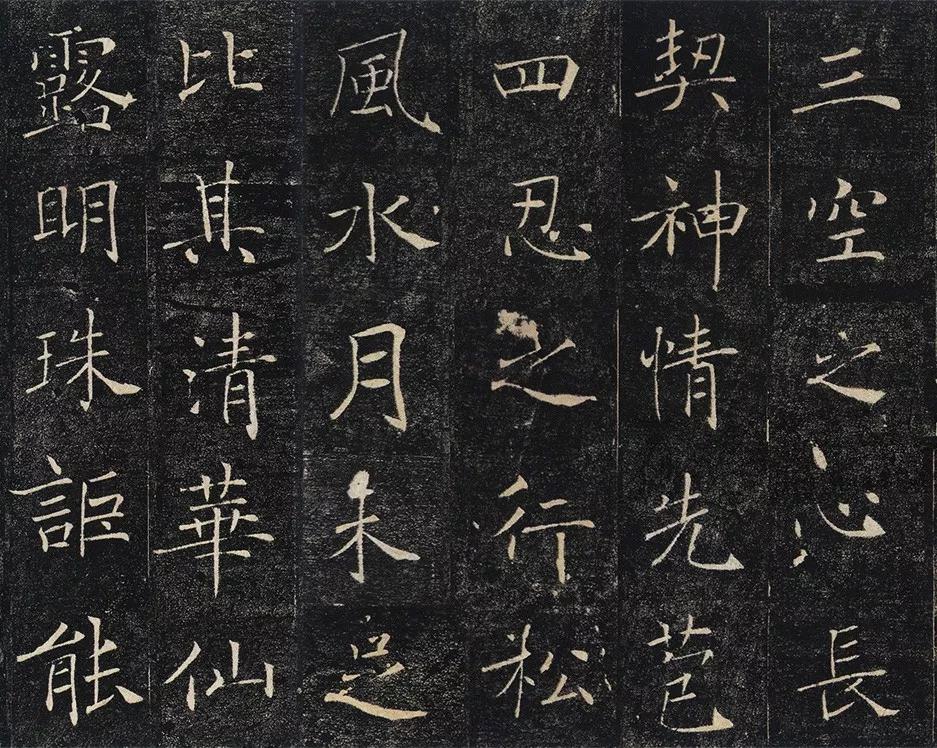 三空之心長
契神情先苞
四忍之行松
風水月未足
比其清華仙
露明珠詎能